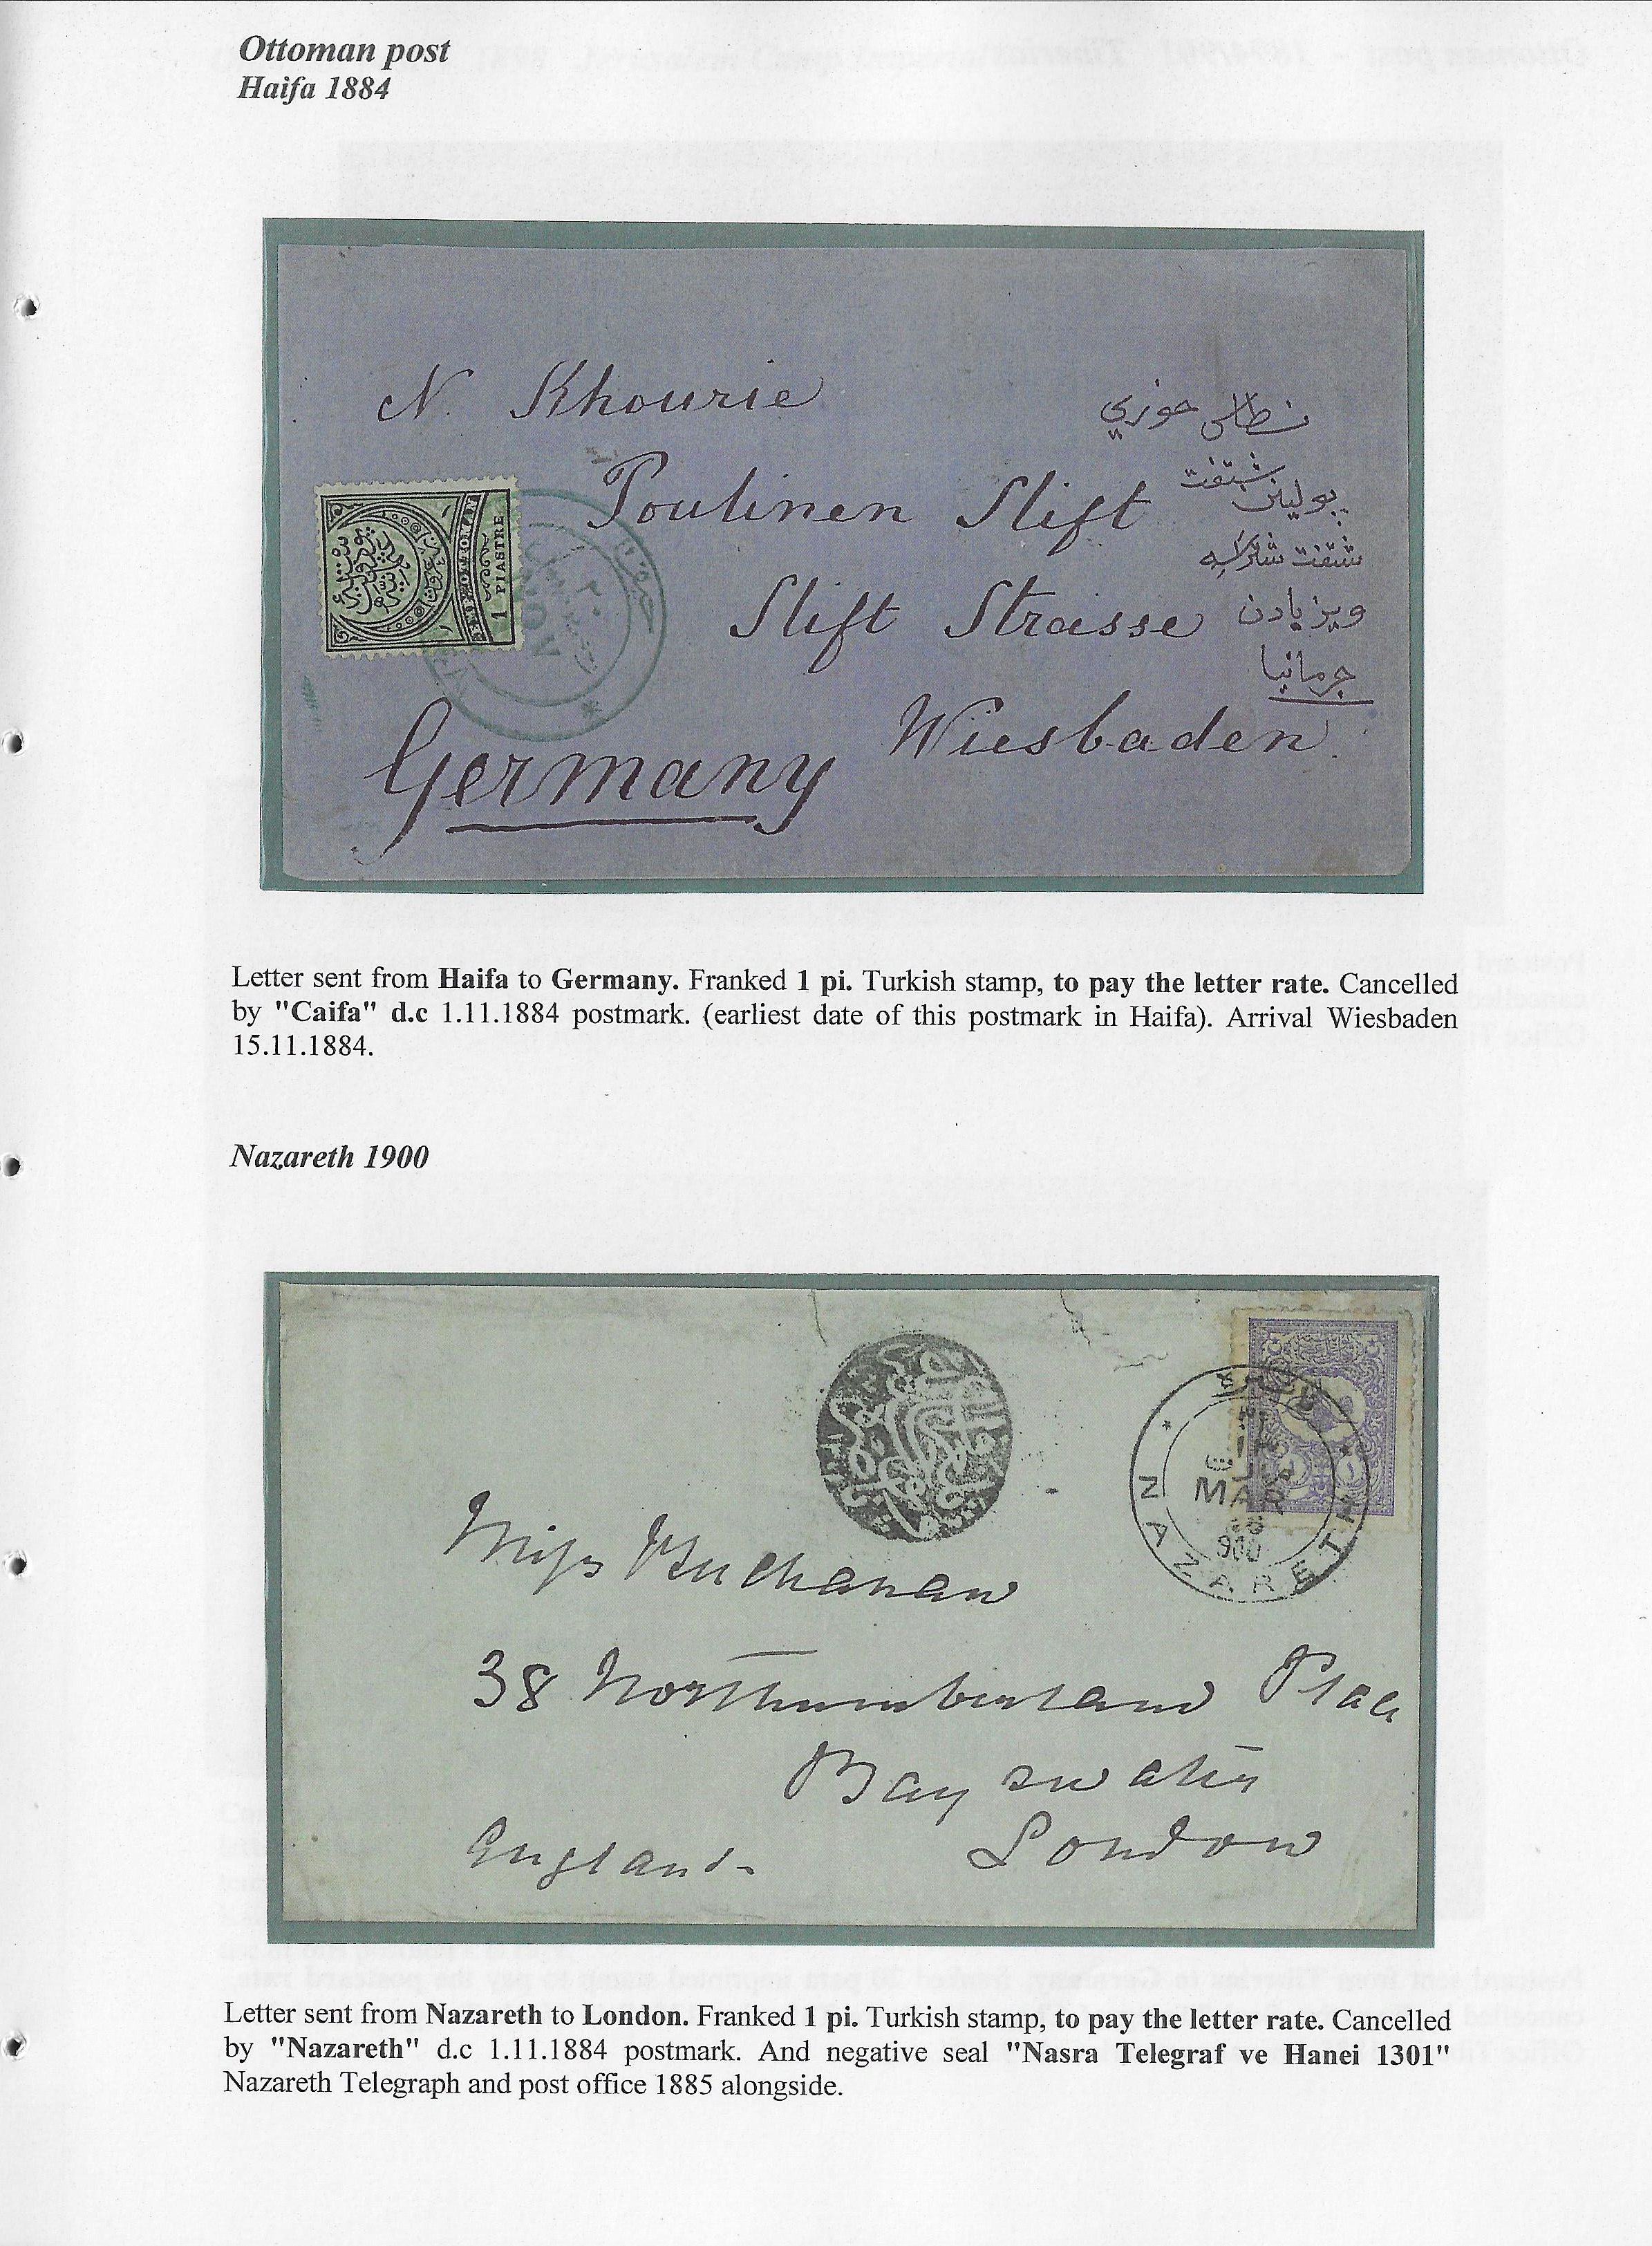 Ottoman post
Haifa 1884
N. Khourie
Poulinen Stift
Stift Strasse
Wiesbaden
Germany
خوري
شتفت
بولينن
شتفت شتراسه
ويزبادن
جرمانيا
1 PIASTRE
NOV
Letter sent from Haifa to Germany. Franked 1 pi. Turkish stamp, to pay the letter rate. Cancelled
by "Caifa" d.c 1.11.1884 postmark. (earliest date of this postmark in Haifa). Arrival Wiesbaden
15.11.1884.
Nazareth 1900
MAR
900
NAZARETH
Miss Buchanan
38 Northumberland Place
Bayswater
London
England
Letter sent from Nazareth to London. Franked 1 pi. Turkish stamp, to pay the letter rate. Cancelled
by "Nazareth" d.c 1.11.1884 postmark. And negative seal "Nasra Telegraf ve Hanei 1301"
Nazareth Telegraph and post office 1885 alongside.